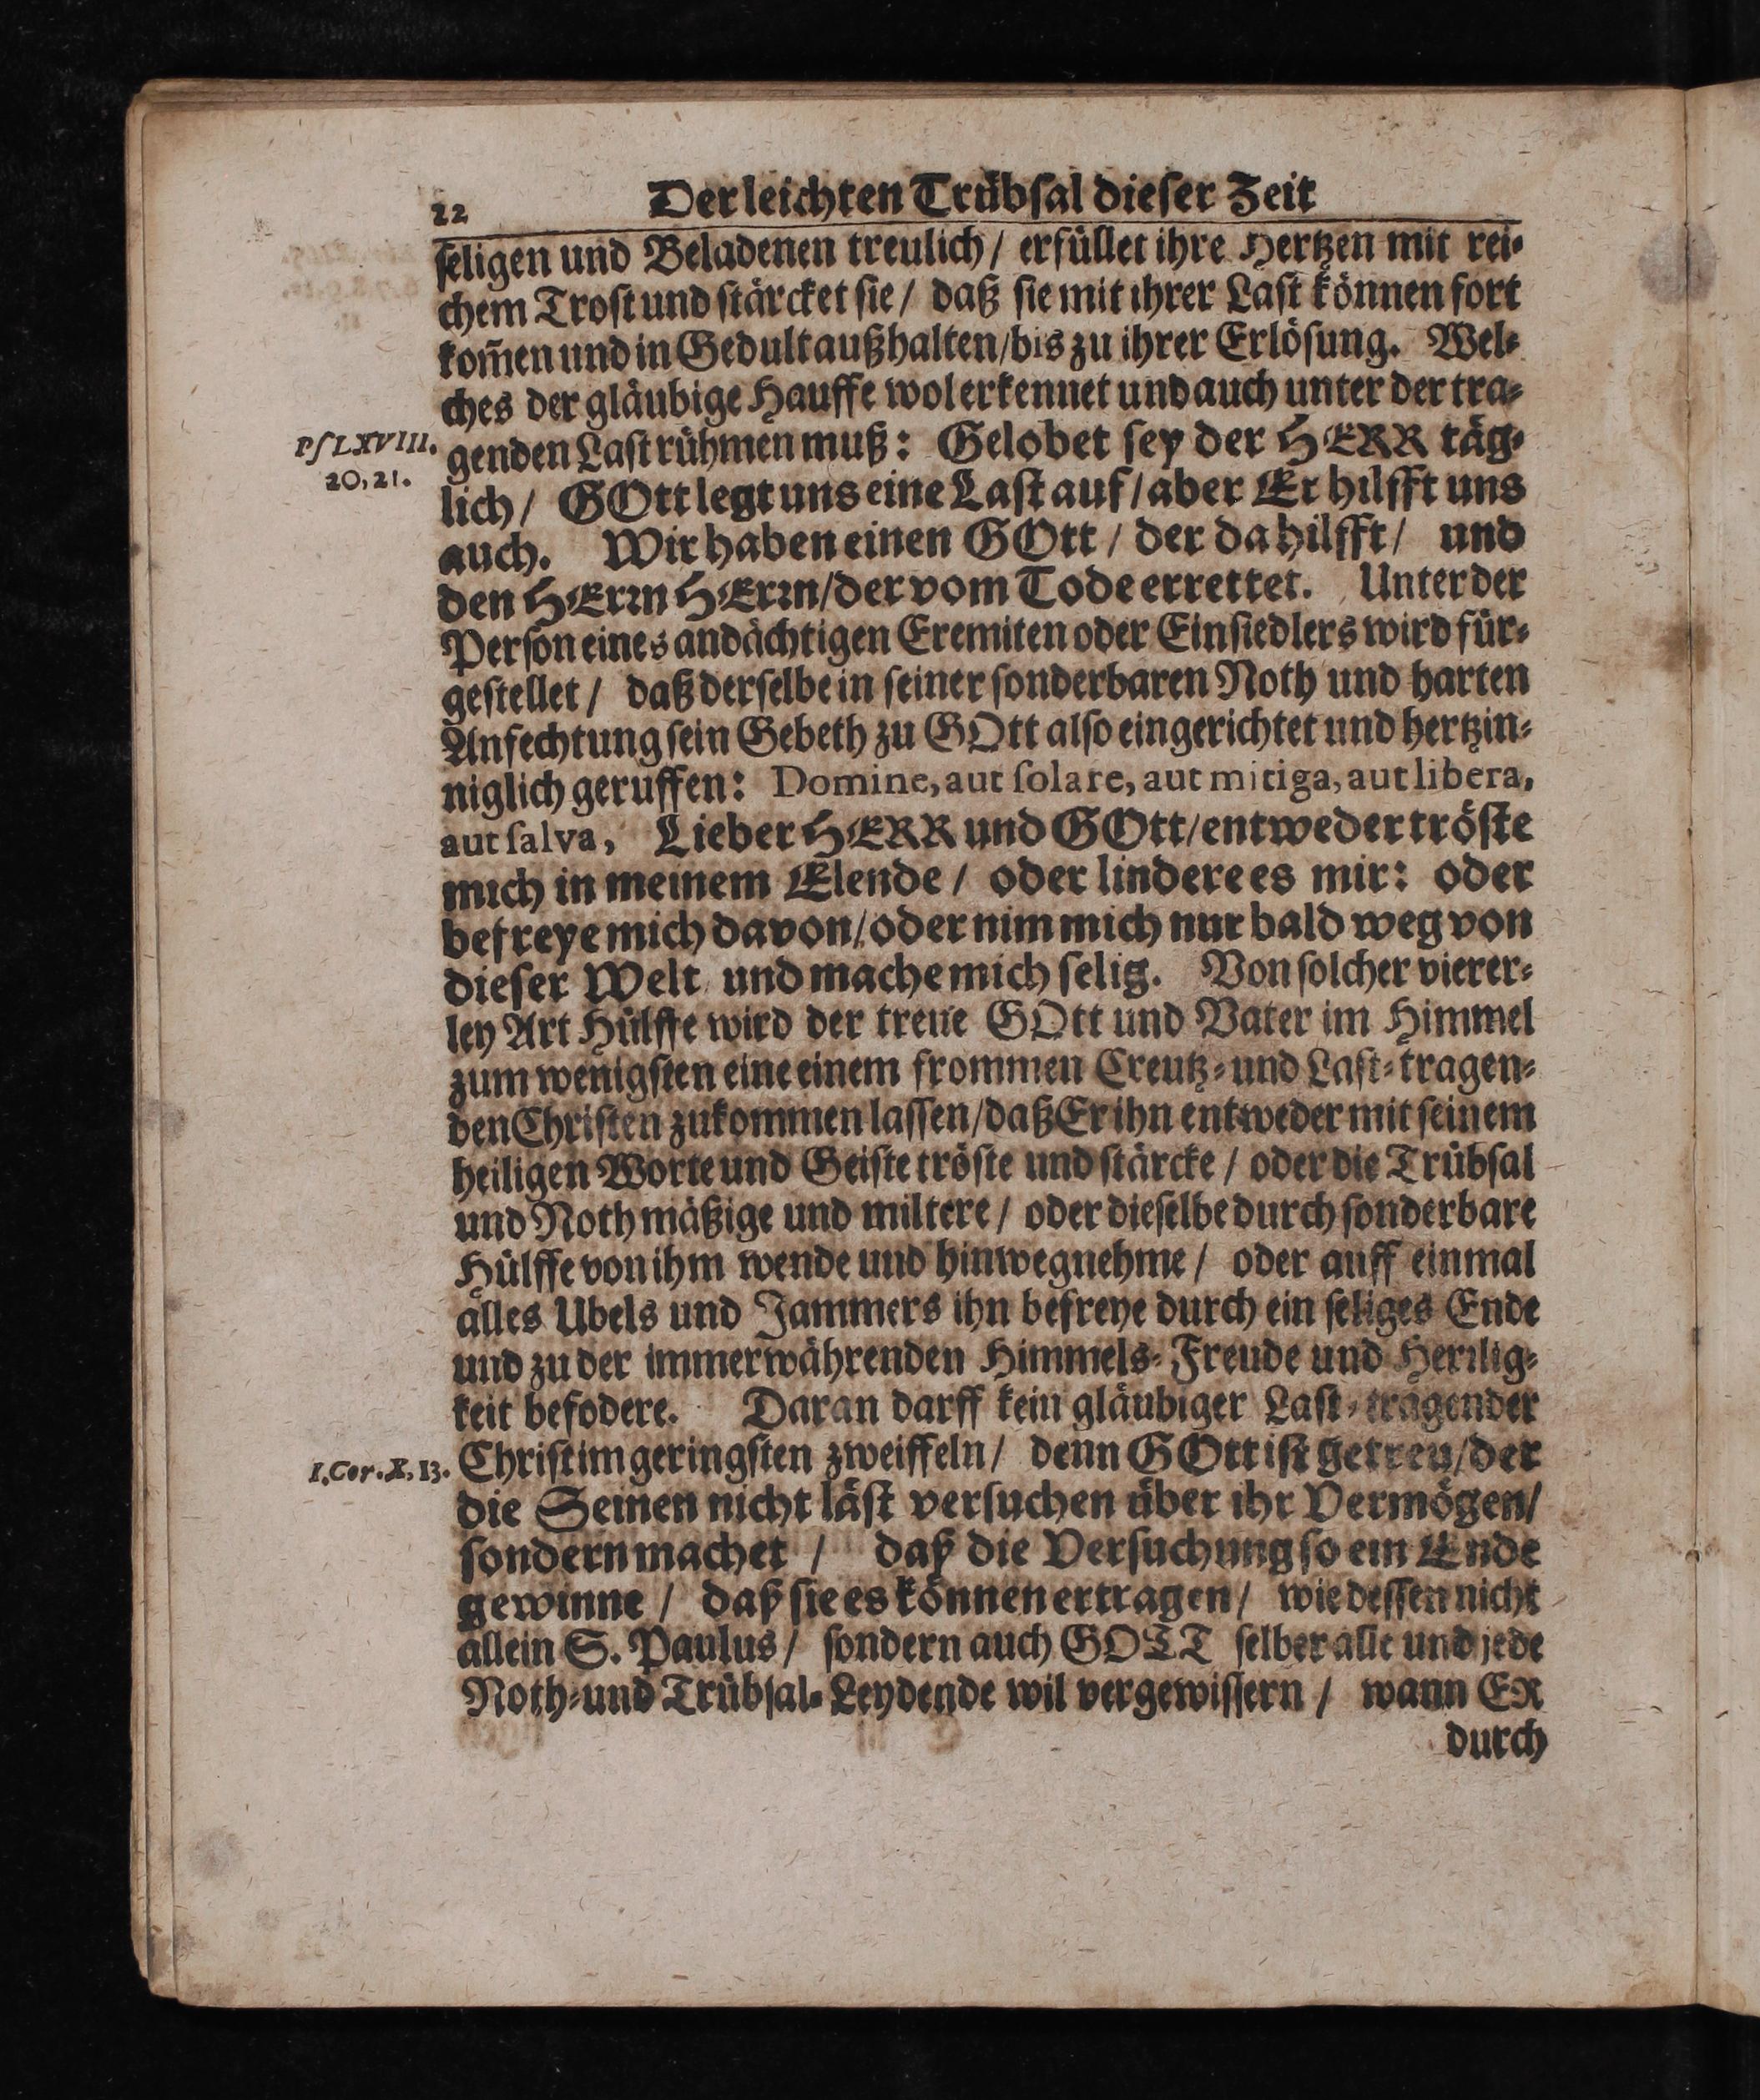 22 Der leichten Trübſal dieſer Zeit
ſeligen und Beladenen treulich / erfüllet ihre Hertzen mit rei⸗
chem Troſt und ſtärcket ſie / daß ſie mit ihrer Laſt können fort
kom̃en und in Gedult außhalten / bis zu ihrer Erlöſung. Wel⸗
ches der gläubige Hauffe wol erkennet und auch unter der tra⸗
Pſ LXVIII. 20, 21.
genden Laſt rühmen muß: Gelobet ſey der HERR täg⸗
lich / GOtt legt uns eine Laſt auf / aber Er hilfft uns
auch. Wir haben einen GOtt / der da hilfft / und
den HErꝛn HErꝛn / der vom Tode errettet. Unter der
Perſon eines andächtigen Eremiten oder Einſiedlers wird für⸗
geſtellet / daß derſelbe in ſeiner ſonderbaren Noth und harten
Anfechtung ſein Gebeth zu GOtt alſo eingerichtet und hertzin⸗
niglich geruffen: Domine, aut ſolare, aut mitiga, aut libera,
aut ſalva, Lieber HERR und GOtt / entweder tröſte
mich in meinem Elende / oder lindere es mir: oder
befreye mich davon / oder nim mich nur bald weg von
dieſer Welt und mache mich ſelig. Von ſolcher vierer⸗
ley Art Hülffe wird der treue GOtt und Vater im Himmel
zum wenigſten eine einem frommen Creutz⸗ und Laſt⸗tragen⸗
den Chriſten zukommen laſſen / daß Er ihn entweder mit ſeinem
heiligen Worte und Geiſte tröſte und ſtärcke / oder die Trübſal
und Noth mäßige und miltere / oder dieſelbe durch ſonderbare
Hülffe von ihm wende und hinwegnehme / oder auff einmal
alles Ubels und Jammers ihn befreye durch ein ſeliges Ende
und zu der immerwährenden Himmels⸗Freude und Herꝛlig⸗
keit befodere. Daran darff kein gläubiger Laſt⸗tragender
I. Cor. X, 13.
Chriſt im geringſten zweiffeln / denn GOtt iſt getreu / der
die Seinen nicht läſt verſuchen über ihr Vermögen /
ſondern machet / daß die Verſuchung ſo ein Ende
gewinne / daß ſie es können ertragen / wie deſſen nicht
allein S. Paulus / ſondern auch GOTT ſelber alle und jede
Noth⸗und Trübſal⸗Leydende wil vergewiſſern / wann ER
durch